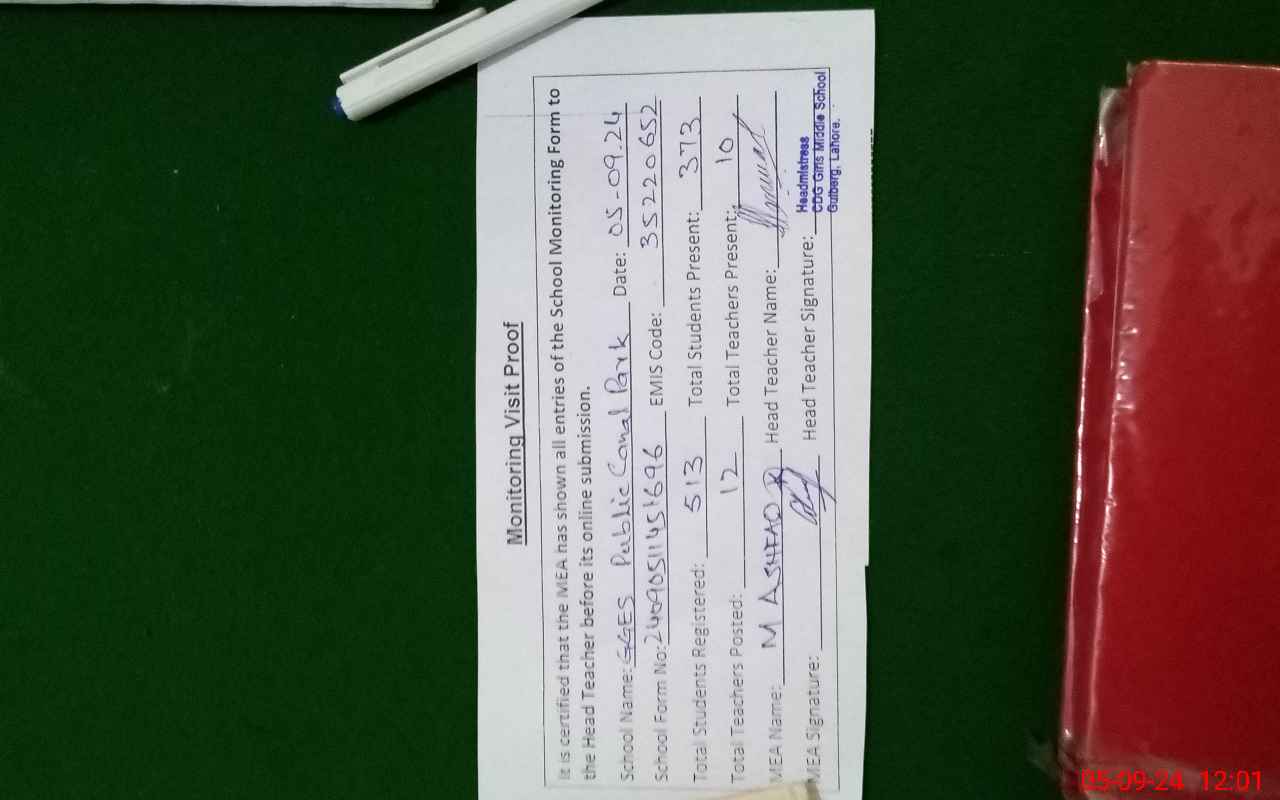 Monitoring Visit Proof
It is certified that the MEA has shown all entries of the School Monitoring Form to
the Head Teacher before its online submission.
School Name: GGES Public Canal Park Date: 05-09.24
School Form No: EMIS Code: 35220652
Total Students Registered: 513 Total Students Present: 373
Total Teachers Posted: 12 Total Teachers Present: 10
MEA Name: M ASHFAQ Head Teacher Name:
MEA Signature: Head Teacher Signature:
Headmistress
CDG Girls Middle School
Gulberg, Lahore.
05-09-24 12:01